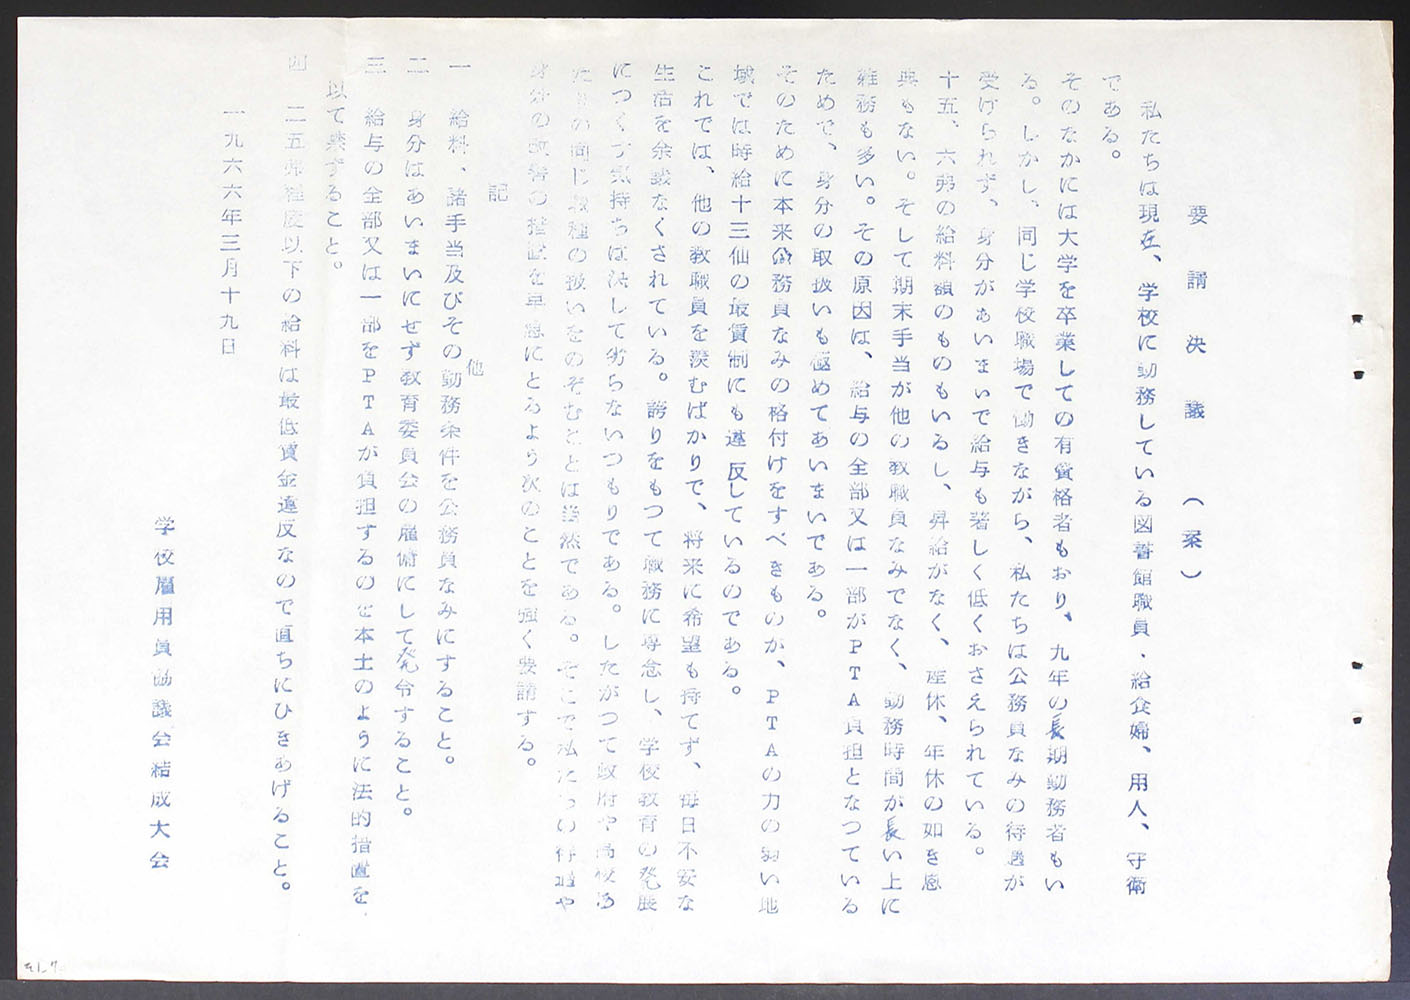 要請決議（案）
私たちは現在、学校に勤務している図書館職員・給食婦、用人、守衛
である。
そのなかには大学を卒業しての有資格者もおり、九年の長期勤務者もい
る。しかし、同じ学校職場で働きながら、私たちは公務員なみの待遇が
受けられず、身分があいまいで給与も著しく低くおさえられている。
十五、六弗の給料額のものもいるし、昇給がなく、産休、年休の如き恩
典もない。そして期末手当が他の教職員なみでなく、勤務時間が長い上に
雑務も多い。その原因は、給与の全部又は一部がPTA負担となつている
ためで、身分の取扱いも極めてあいまいである。
そのために本来公務員なみの格付けをすべきものが、PTAの力の弱い地
域では時給十三仙の最賃制にも違反しているのである。
これでは、他の教職員を羨むばかりで、将来に希望も持てず、毎日不安な
生活を余儀なくされている。誇りをもつて職務に専念し、学校教育の発展
につくす気持ちは決して劣らないつもりである。したがつて政府や高校
の同じ職種の扱いをのぞむことは当然である。そこで私たちの待遇や
身分の改善の措置を早急にとるよう次のことを強く要請する。
記
一 給料、諸手当及びその他勤務条件を公務員なみにすること。
二 身分はあいまいにせず教育委員会の雇傭にして発令すること。
三 給与の全部又は一部をPTAが負担するのを本土のように法的措置を
以て禁ずること。
四 二五弗程度以下の給料は最低賃金違反なので直ちにひきあげること。
一九六六年三月十九日
学校雇用員協議会結成大会